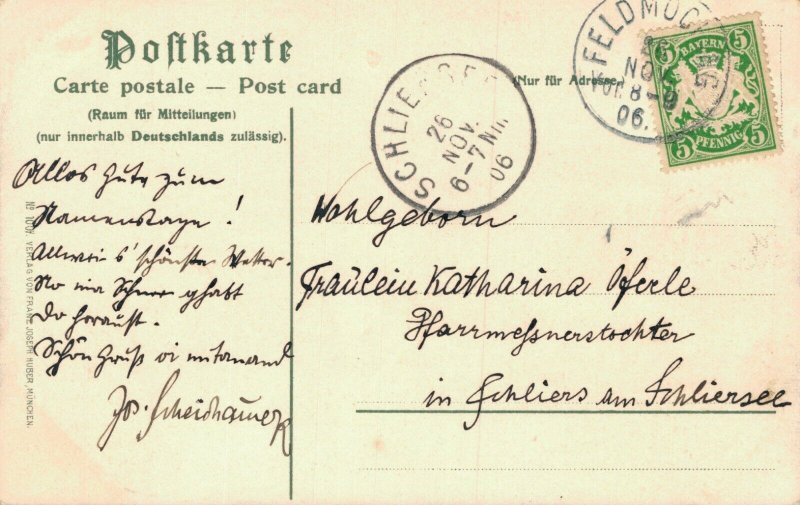 Postkarte
Carte postale — Post card
(Raum für Mitteilungen)
(nur innerhalb Deutschlands zulässig).
(Nur für Adresse)
Alles Gute zum
Namenstage!
Allweil s' schönste Wetter.
No nia Schnee ghabt
Do heraußt.
Schön Gruß oi mitanand
Jos. Scheidhauer
Wohlgeborn
Fräulein Katharina Öferle
Pfarrmessnerstochter
in Schliers am Schliersee
SCHLIERSEE
26
NOV.
6-7 Nm.
06
FELDMOCHING
NOV.
8-9
06.
BAYERN
5 5
PFENNIG
5 5
VERLAG VON FRANZ JOSEPH HUBER, MÜNCHEN.